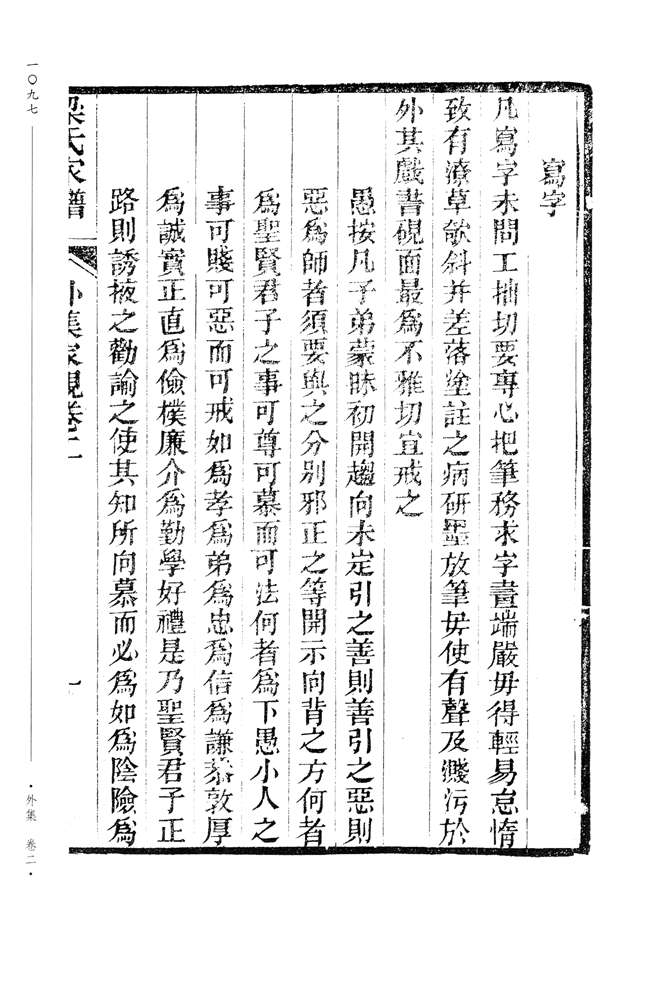 寫字
凡寫字未問工拙切要專心把筆務求字畫端嚴毋得輕易怠惰
致有潦草欹斜并差落塗註之病研墨放筆毋使有聲及濺污於
外其戲書硯面最爲不雅切宜戒之
愚按凡子弟蒙昧初開趨向未定引之善則善引之惡則
惡爲師者須要與之分别邪正之等開示向背之方何者
爲聖賢君子之事可尊可慕而可法何者爲下愚小人之
事可賤可惡而可戒如爲孝爲弟爲忠爲信爲謙恭敦厚
爲誠實正直爲儉樸廉介爲勤學好禮是乃聖賢君子正
路則誘掖之勸諭之使其知所向慕而必爲如爲陰險爲
梁氏家譜 外集家規卷二
一〇九七
·外集 卷二·